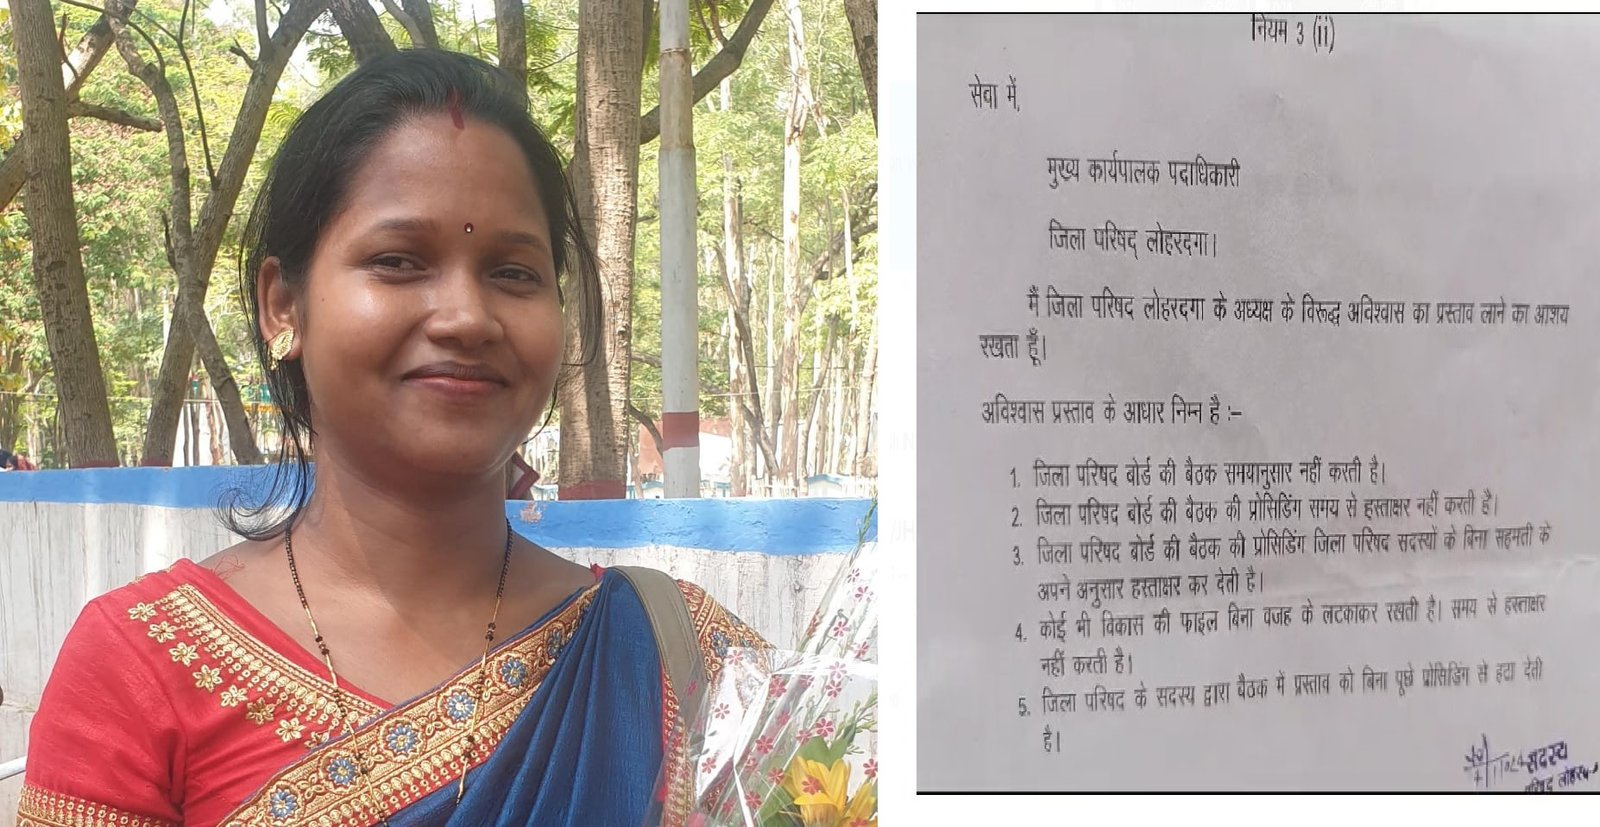 नियम 3 (ii)
सेवा में,
मुख्य कार्यपालक पदाधिकारी
जिला परिषद् लोहरदगा।
मैं जिला परिषद लोहरदगा के अध्यक्ष के विरूद्ध अविश्वास का प्रस्ताव लाने का आशय
रखता हूँ।
अविश्वास प्रस्ताव के आधार निम्न है :–
1. जिला परिषद बोर्ड की बैठक समयानुसार नहीं करती है।
2. जिला परिषद बोर्ड की बैठक की प्रोसिडिंग समय से हस्ताक्षर नहीं करती है।
3. जिला परिषद बोर्ड की बैठक की प्रोसिडिंग जिला परिषद सदस्यों के बिना सहमती के
अपने अनुसार हस्ताक्षर कर देती है।
4. कोई भी विकास की फाइल बिना वजह के लटकाकर रखती है। समय से हस्ताक्षर
नहीं करती है।
5. जिला परिषद के सदस्य द्वारा बैठक में प्रस्ताव को बिना पूछे प्रोसिडिंग से हटा देती
है।
सदस्य